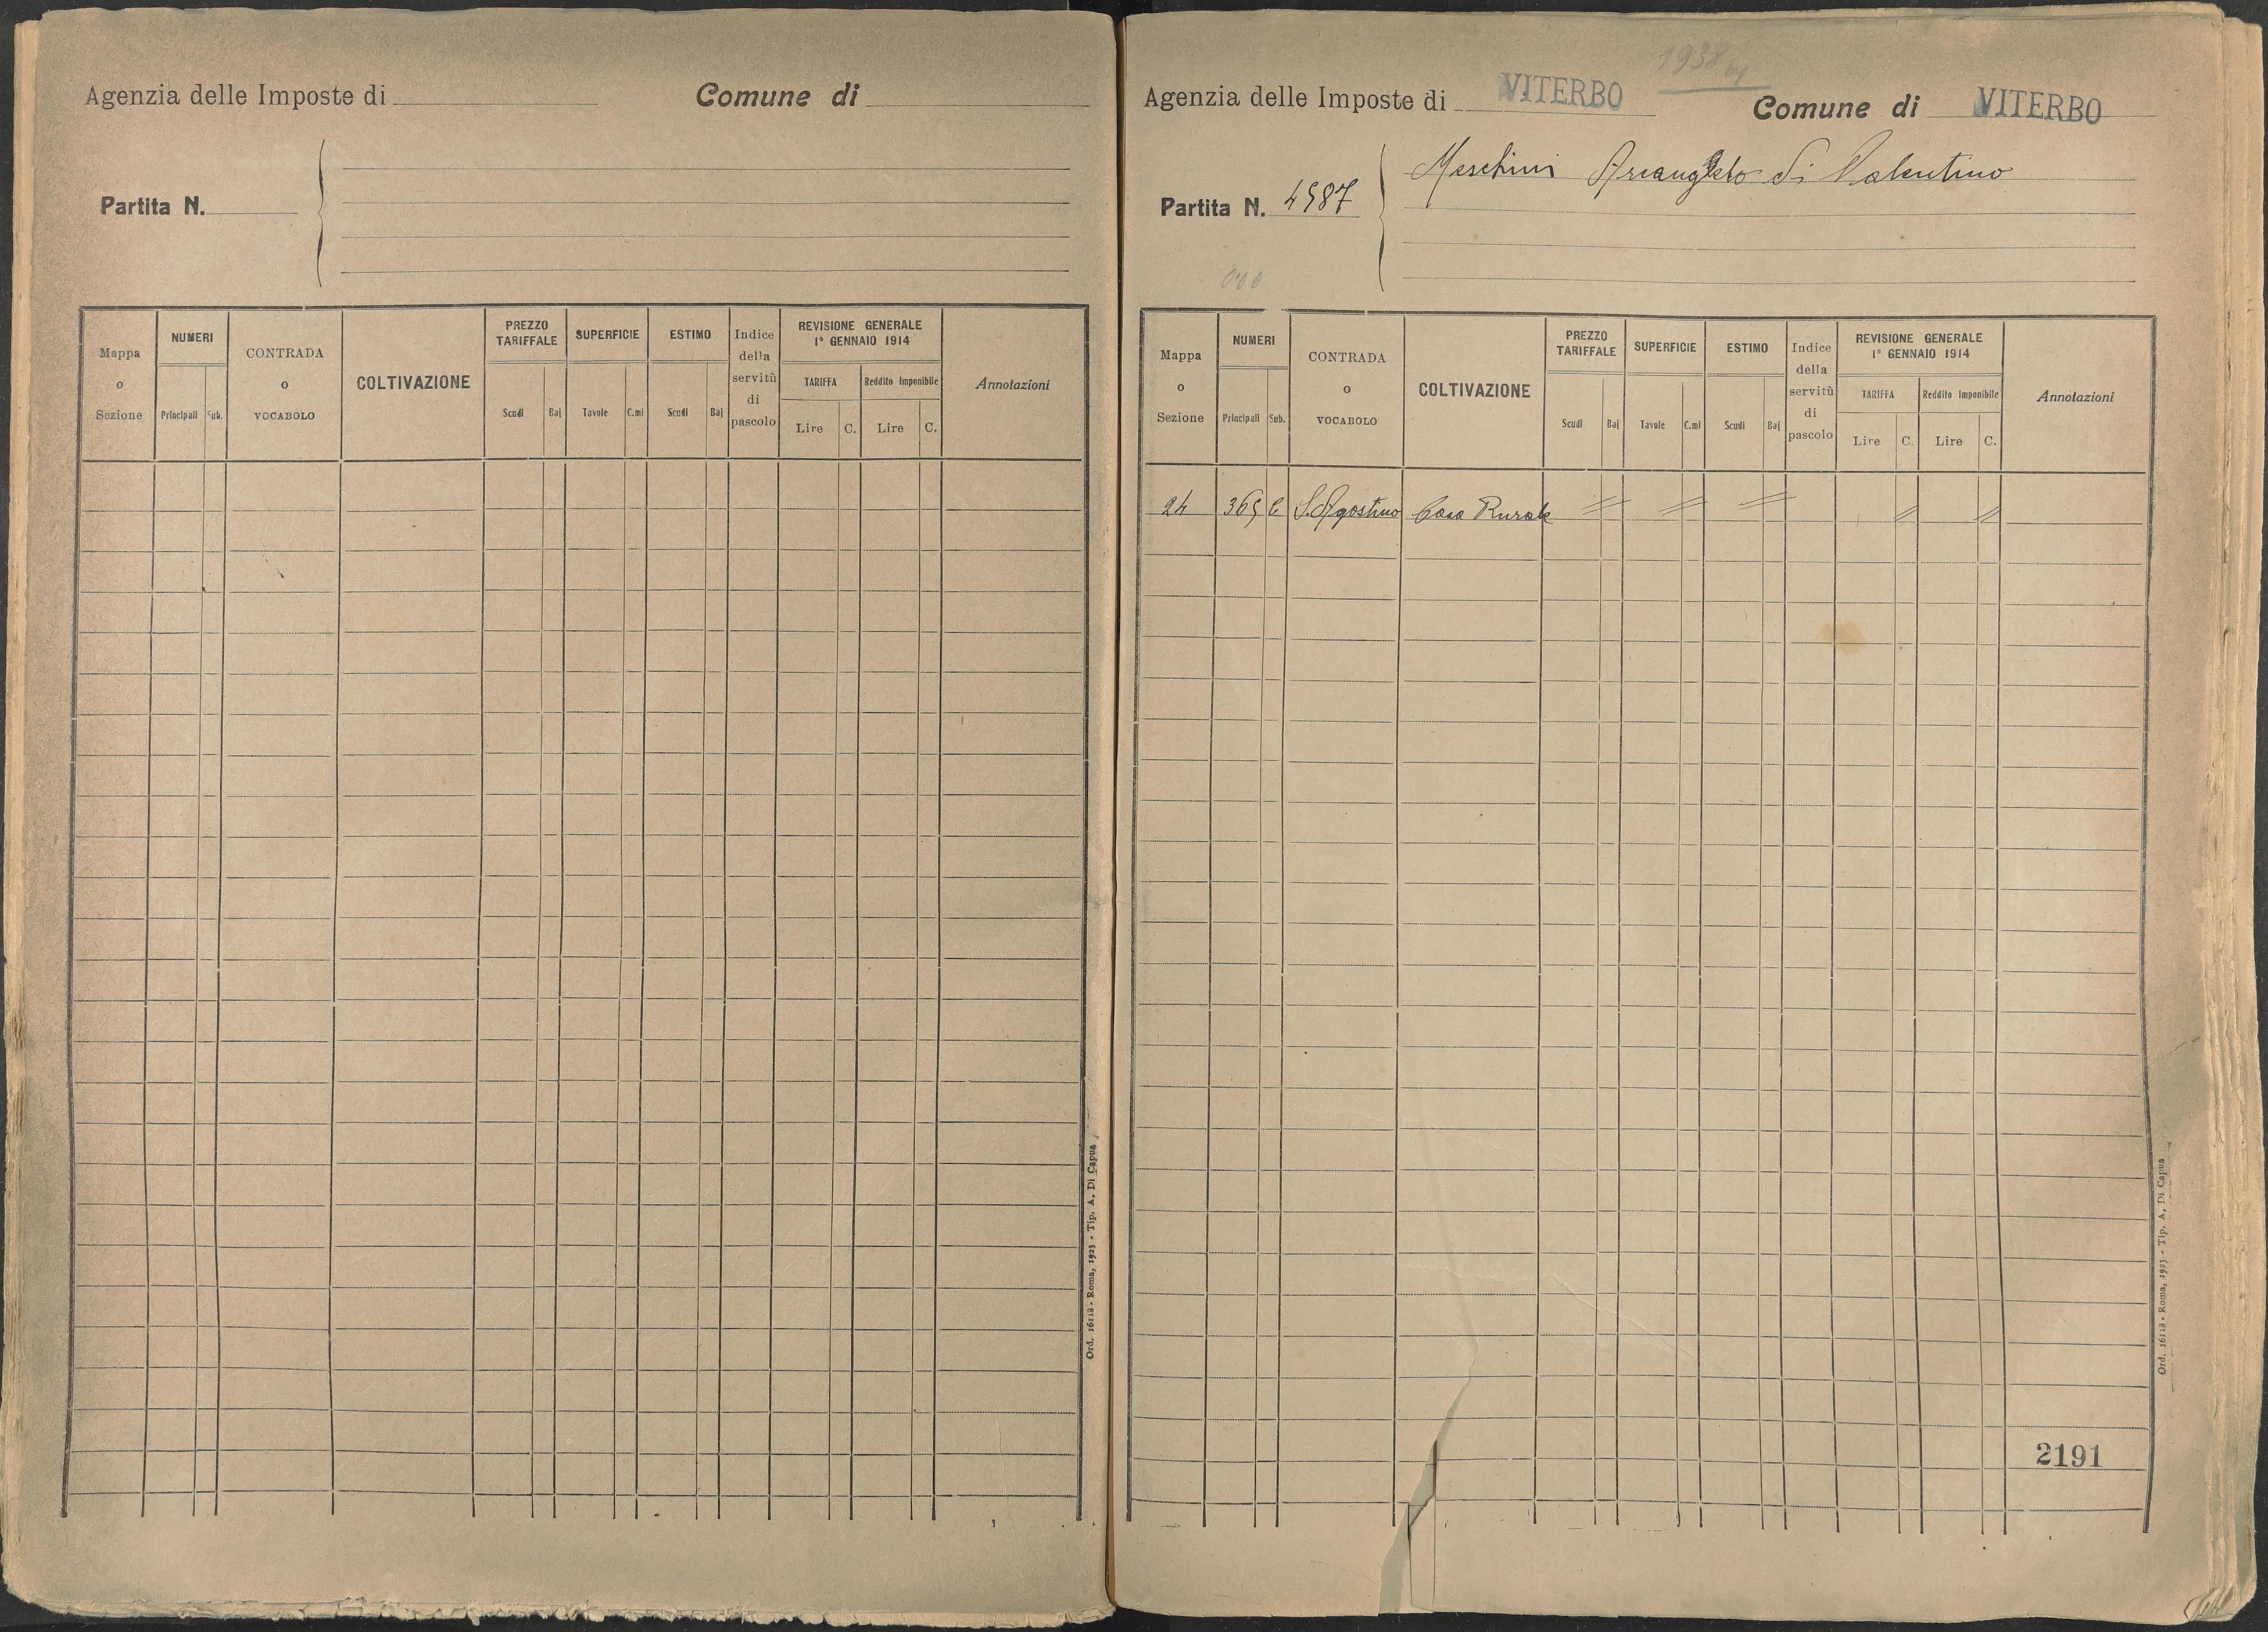 Agenzia delle Imposte di Comune di
Partita N.
Mappa o Sezione
NUMERI
Principali Sub.
CONTRADA o VOCABOLO
COLTIVAZIONE
PREZZO TARIFFALE
Scudi Baj
SUPERFICIE
Tavole C.mi
ESTIMO
Scudi Baj
Indice della servitù di pascolo
REVISIONE GENERALE
1° GENNAIO 1914
TARIFFA Reddito Imponibile
Lire C. Lire C.
Annotazioni
Ord. 16118 - Roma, 1923 - Tip. A. Di Capua
1938
Agenzia delle Imposte di VITERBO Comune di VITERBO
Meschini Arcangelo di Valentino
Partita N. 4987
Mappa o Sezione
NUMERI
Principali Sub.
CONTRADA o VOCABOLO
COLTIVAZIONE
PREZZO TARIFFALE
Scudi Baj
SUPERFICIE
Tavole C.mi
ESTIMO
Scudi Baj
Indice della servitù di pascolo
REVISIONE GENERALE
1° GENNAIO 1914
TARIFFA Reddito Imponibile
Lire C. Lire C.
Annotazioni
24 365 S. Agostino Casa Rurale
2191
Ord. 16118 - Roma, 1923 - Tip. A. Di Capua